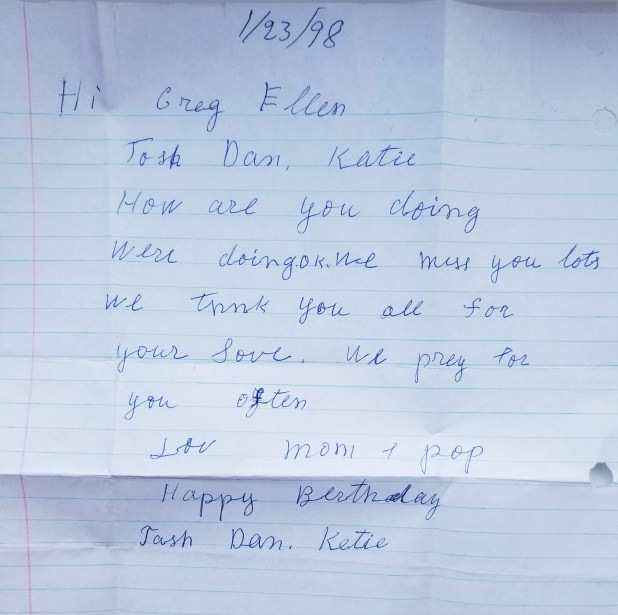 1/23/98
Hi Greg Ellen
Josh Dan, Katie
How are you doing
Were doing.ok. We miss you lots
we thnk you all for
your Love. We prey for
you often
Lov mom + pop
Happy Berthday
Jash Dan. Ketie